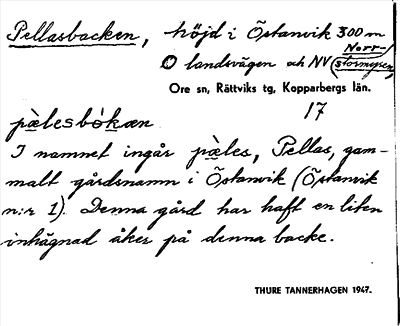 Pellasbacken, höjd i Östanvik 300 m
O landsvägen och NV (Norr-/
stormyren)
Ore sn, Rättviks tg, Kopparbergs län.
17
pä̀lesbòkæn
I namnet ingår pä̀les, Pellas, gam-
malt gårdsnamn i Östanvik (Östanvik
n:r 1). Denna gård har haft en liten
inhägnad åker på denna backe.
THURE TANNERHAGEN 1947.